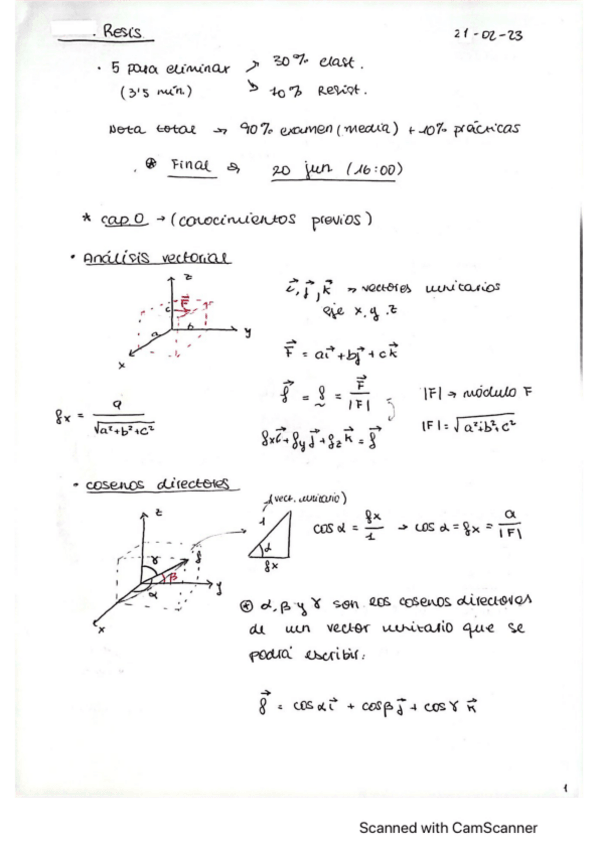 . Resis.
21-02-23
· 5 para eliminar → 30% elast.
(3'5 mín.) ↳ 70% Resist.
Nota total → 90% examen (media) + 10% prácticas
. ⊛ Final → 20 jun (16:00)
* cap. 0 → (conocimientos previos)
· Análisis vectorial
z
F⃗
c
a
b
y
x
i⃗, j⃗, k⃗ → vectores unitarios
eje x, y, z
F⃗ = ai⃗ + bj⃗ + ck⃗
f⃗ = f = F⃗ / |F|
|F| → módulo F
fx = a / √(a²+b²+c²)
fx i⃗ + fy j⃗ + fz k⃗ = f⃗
|F| = √(a²+b²+c²)
· cosenos directores
z
γ
f
β
α
y
x
(vect. unitario)
1
α
fx
cos α = fx / 1 → cos α = fx = a / |F|
⊛ α, β y γ son los cosenos directores
de un vector unitario que se
podrá escribir:
f⃗ = cos α i⃗ + cos β j⃗ + cos γ k⃗
1
Scanned with CamScanner